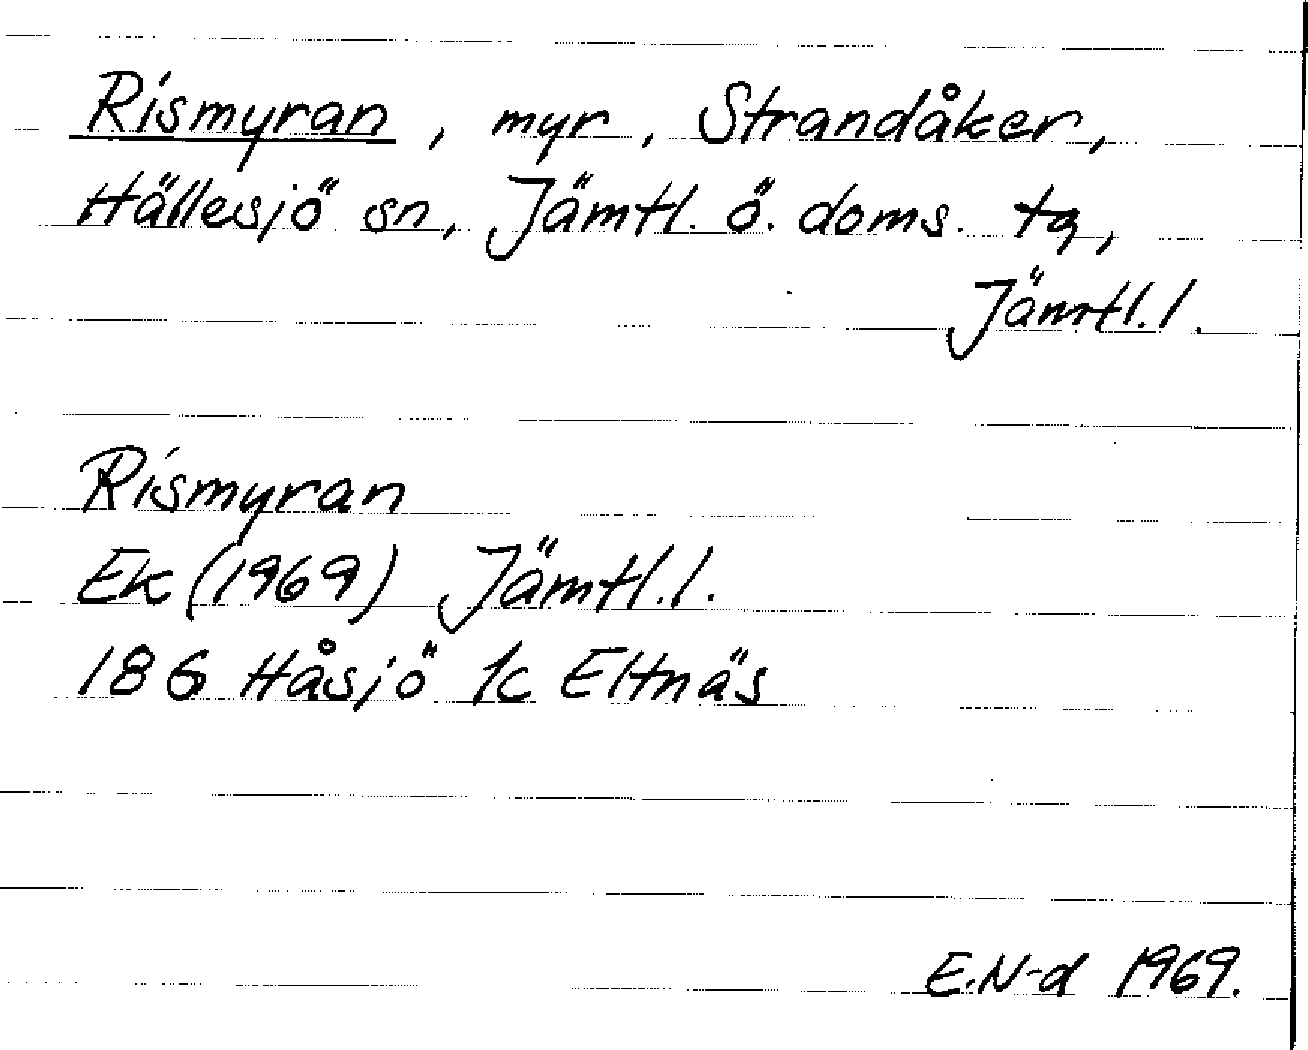 Rismyran, myr, Strandåker,
Hällesjö sn, Jämtl. ö. doms. tg,
Jämtl. l.
Rismyran
Ek (1969) Jämtl. l.
186 Håsjö 1c Eltnäs
E.N-d 1969.